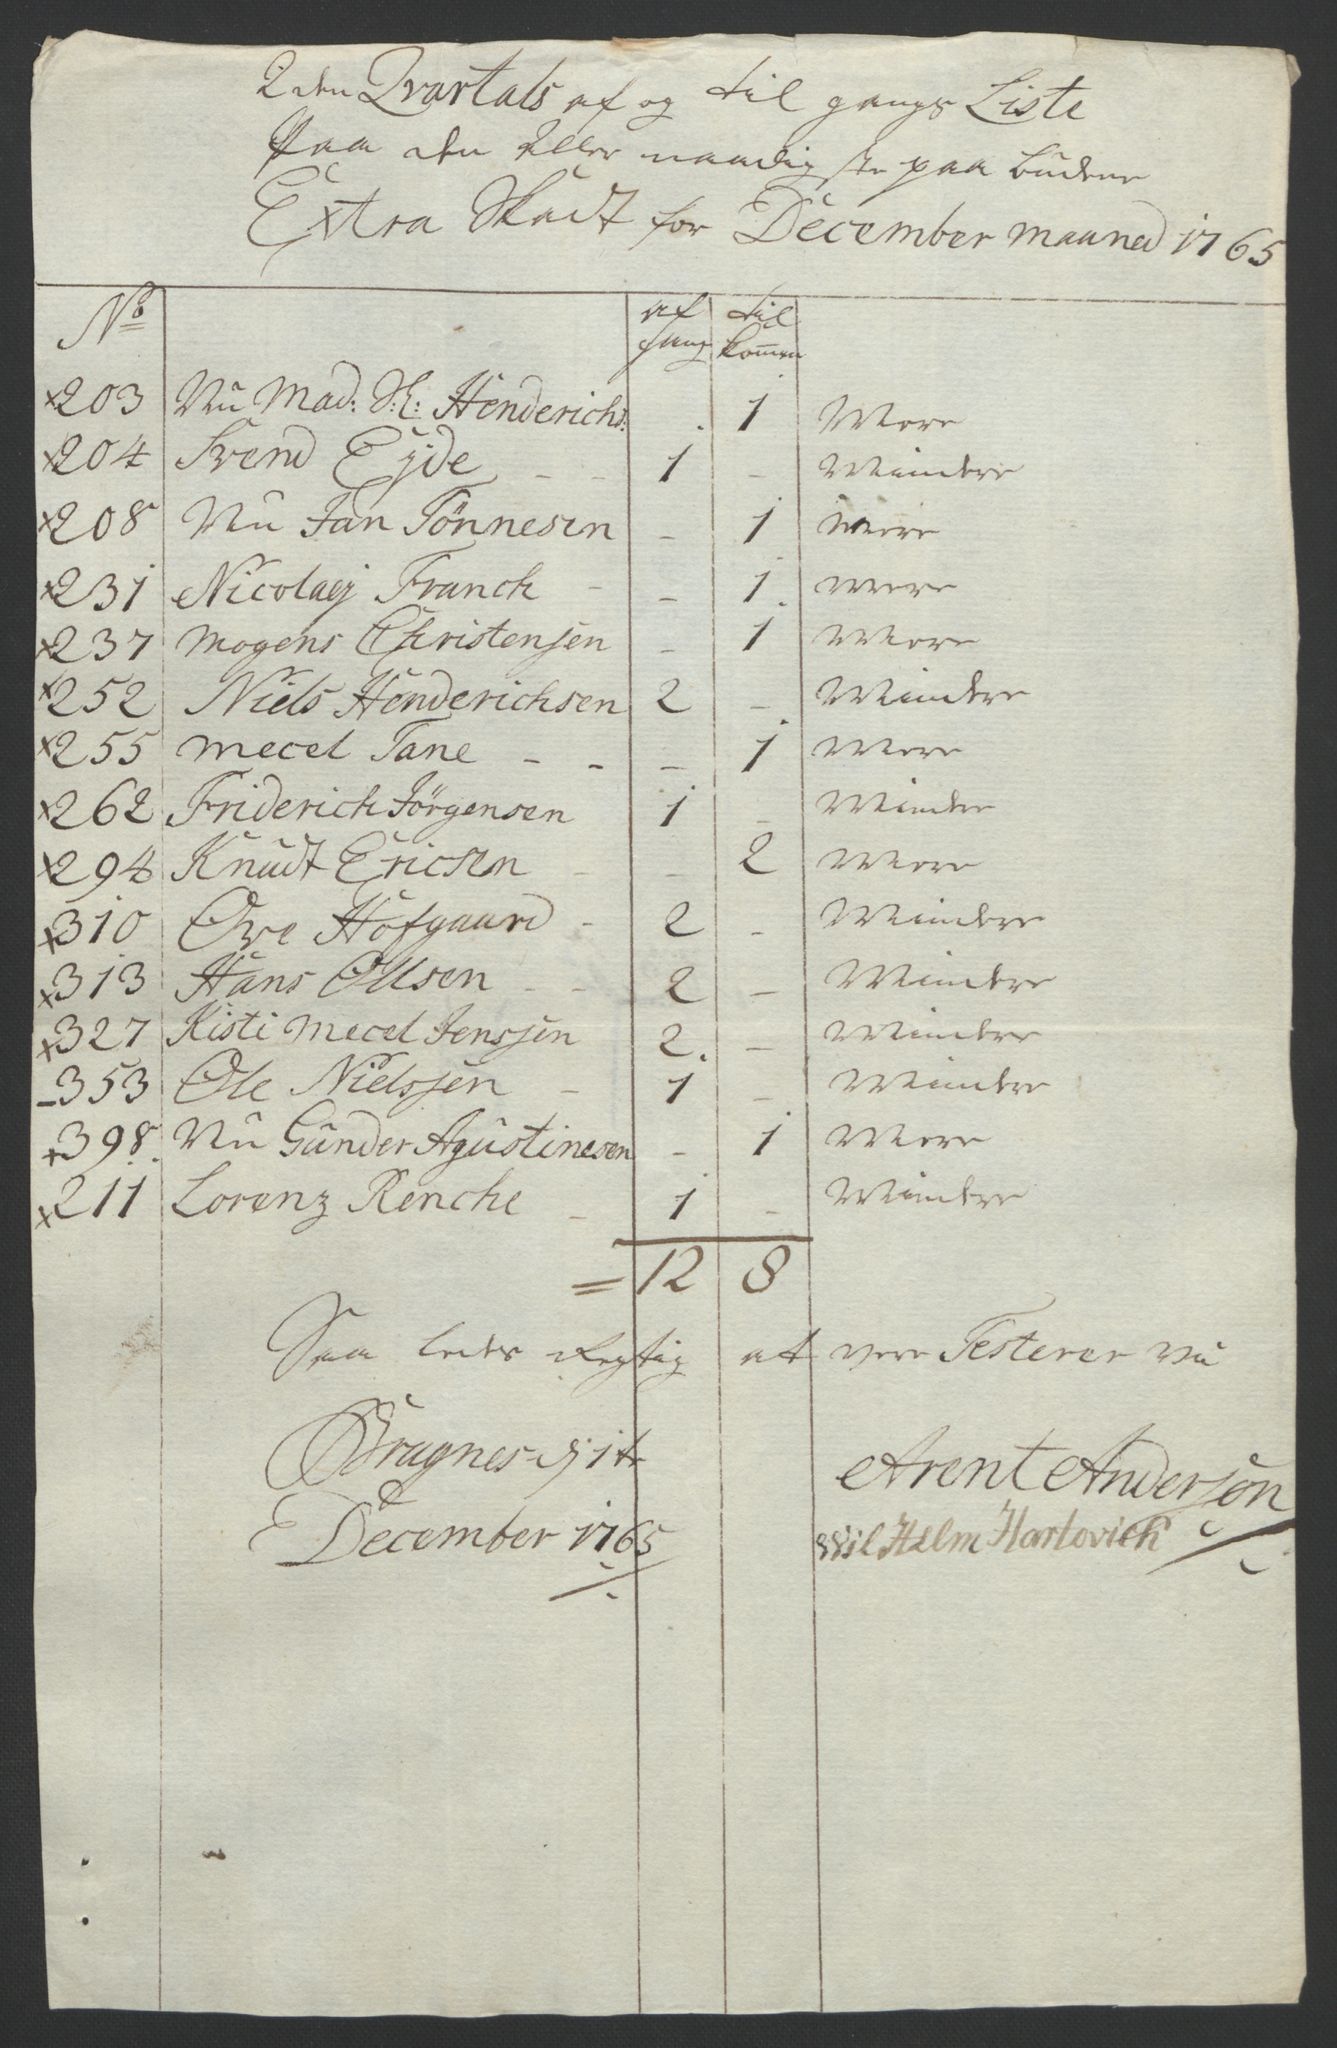 2den Qvartals af og til gangs Liste
Paa den aller naadigste paa budene
Extra Skadt for December maaned 1765
No af gang til kommen
×203 Vü Mad: Sl: Henderichs: . 1 Mere
×204 Svend Eÿde - - 1 - Mindere
×208 Vü Jan Tönnesen - 1 Mere
×231 Nicolaij Franck - - 1. mere
×237 Mogens Christensen - 1 Mere
×252 Niels Henderichsen 2 - Mindere
×255 mecel Tane - - - 1 Mere
×262 Friderich Jörgensen 1 - Mindre
×294 Knüdt Ericsen - - 2 Mere
×310 Ove Hofgaard - 2 - Mindere
×313 Hans Ollsen - - 2 - Mindere
×327 Kisti Mecel Jenssen 2. - Mindere
-353 Ole Nielssen - 1 - Mindere
+398. Vü Günder Agüstinesen - 1 Mere
×211 Lorenz Renche - 1 - Mindere
= 12 8
Saa ledes Regtig at vere Testerer Vü
Bragnes d: 1te
December 1765
Arent Anderson
WilHelm Hartovich